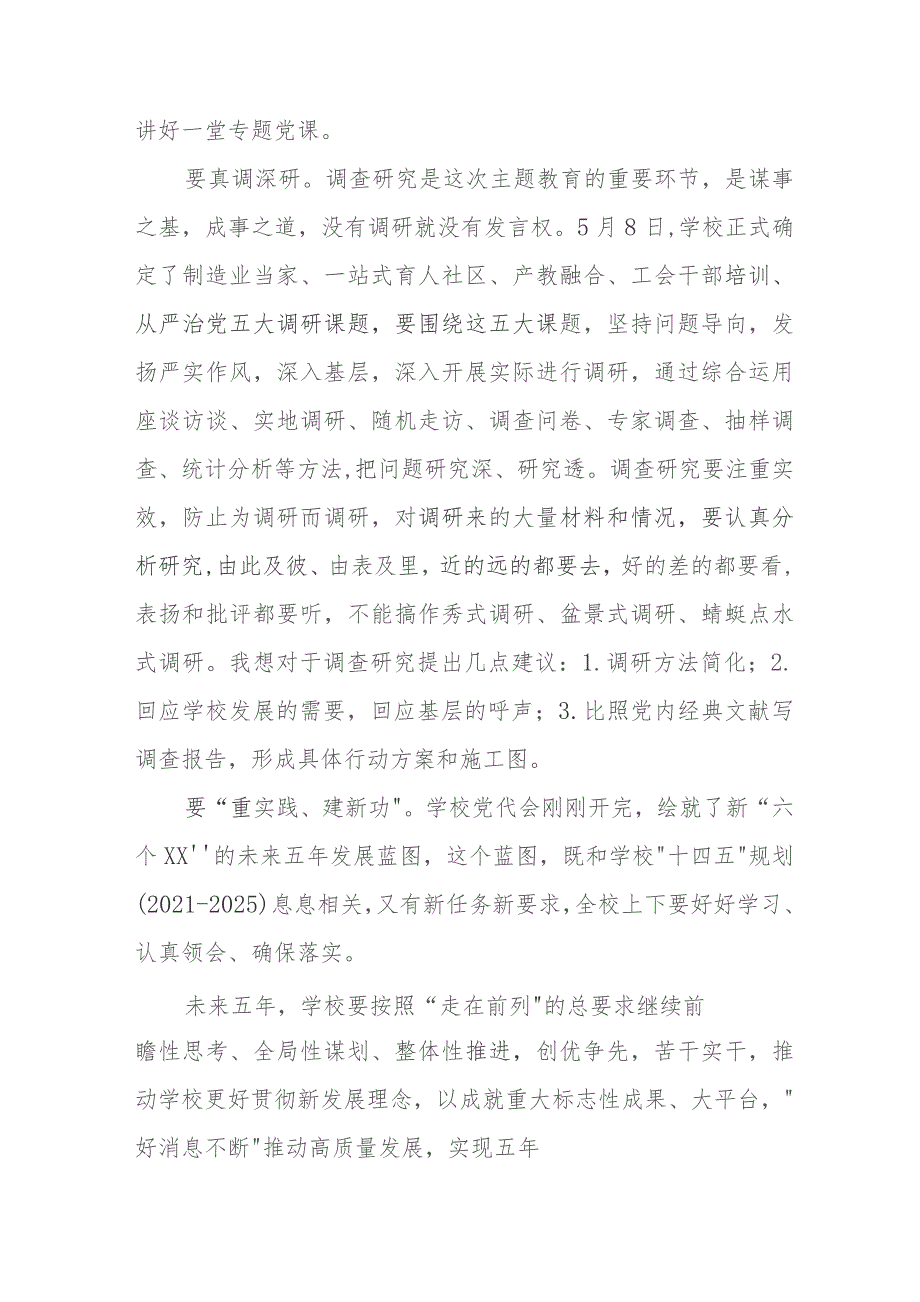 讲好一堂专题党课。
要真调深研。调查研究是这次主题教育的重要环节，是谋事
之基，成事之道，没有调研就没有发言权。5月8日,学校正式确
定了制造业当家、一站式育人社区、产教融合、工会干部培训、
从严治党五大调研课题，要围绕这五大课题，坚持问题导向，发
扬严实作风，深入基层，深入开展实际进行调研，通过综合运用
座谈访谈、实地调研、随机走访、调查问卷、专家调查、抽样调
查、统计分析等方法,把问题研究深、研究透。调查研究要注重实
效，防止为调研而调研，对调研来的大量材料和情况，要认真分
析研究,由此及彼、由表及里，近的远的都要去，好的差的都要看,
表扬和批评都要听，不能搞作秀式调研、盆景式调研、蜻蜓点水
式调研。我想对于调查研究提出几点建议：1.调研方法简化；2.
回应学校发展的需要，回应基层的呼声；3.比照党内经典文献写
调查报告，形成具体行动方案和施工图。
要“重实践、建新功"。学校党代会刚刚开完，绘就了新“六
个XX''的未来五年发展蓝图，这个蓝图，既和学校"十四五"规划
(2021-2025)息息相关,又有新任务新要求,全校上下要好好学习、
认真领会、确保落实。
未来五年，学校要按照“走在前列"的总要求继续前
瞻性思考、全局性谋划、整体性推进，创优争先，苦干实干，推
动学校更好贯彻新发展理念，以成就重大标志性成果、大平台，"
好消息不断"推动高质量发展，实现五年